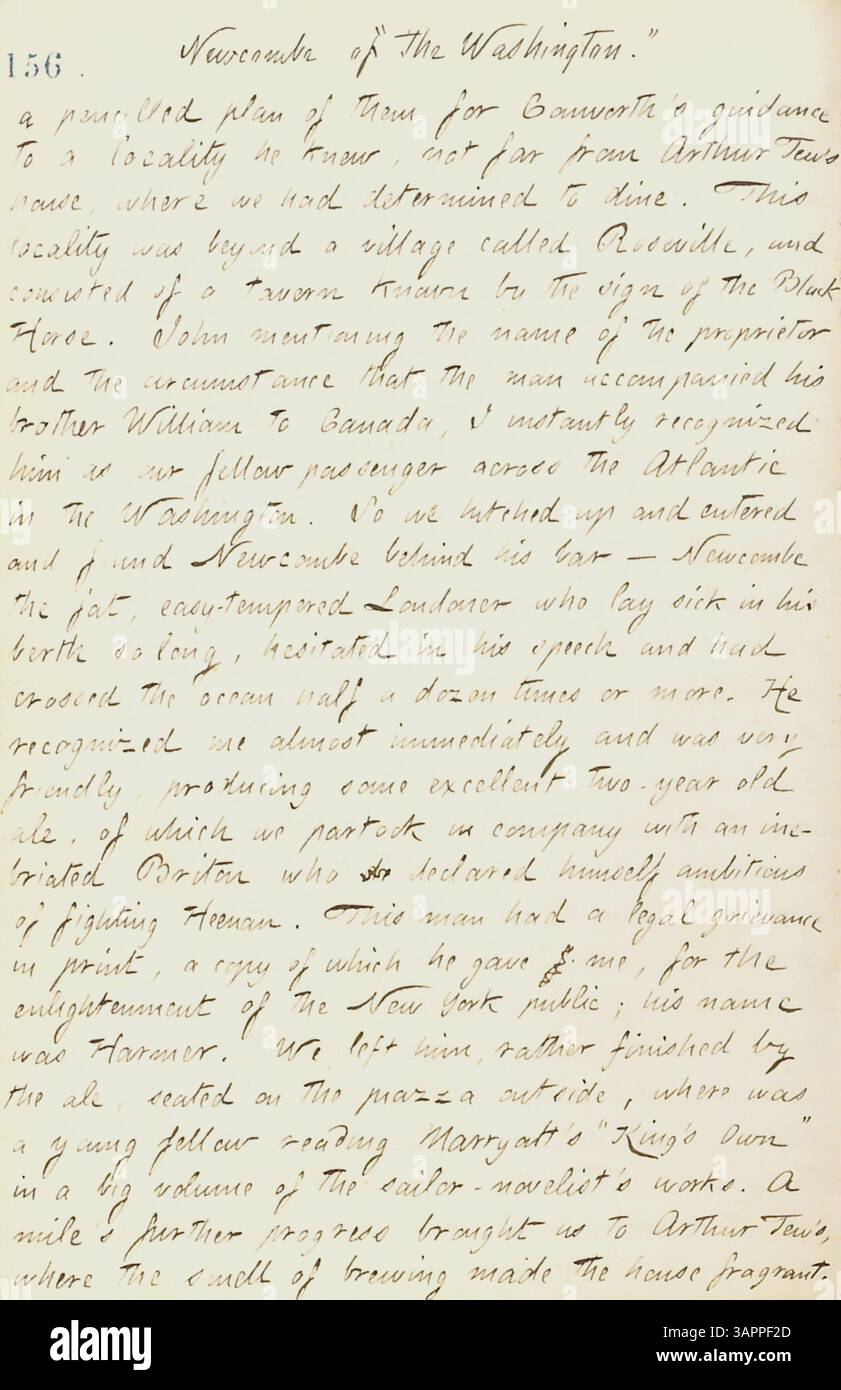 156
Newcombe of "The Washington."
a pencilled plan of them for Conworth's guidance
to a locality he knew, not far from Arthur Tew's
house, where we had determined to dine. This
locality was beyond a village called Roseville, and
consisted of a tavern known by the sign of the Black
Horse. John mentioning the name of the proprietor
and the circumstance that the man accompanied his
brother William to Canada, I instantly recognized
him as our fellow passenger across the Atlantic
in the Washington. So we hitched up and entered
and found Newcombe behind his bar — Newcombe
the fat, easy-tempered Londoner who lay sick in his
berth so long, hesitated in his speech and had
crossed the ocean half a dozen times or more. He
recognized me almost immediately and was very
friendly, producing some excellent two-year old
ale, of which we partook in company with an ine-
briated Briton who declared himself ambitious
of fighting Heenan. This man had a legal grievance
in print, a copy of which he gave me, for the
enlightenment of the New York public; his name
was Harmer. We left him, rather finished by
the ale, seated on the piazza outside, where was
a young fellow reading Marryatt's "King's Own"
in a big volume of the sailor-novelist's works. A
mile's further progress brought us to Arthur Tew's,
where the smell of brewing made the house fragrant.
alamy
Image ID: 3APPF2D
www.alamy.com